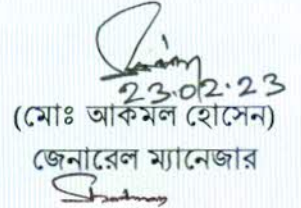 23.02.23
(মোঃ আকমল হোসেন)
জেনারেল ম্যানেজার